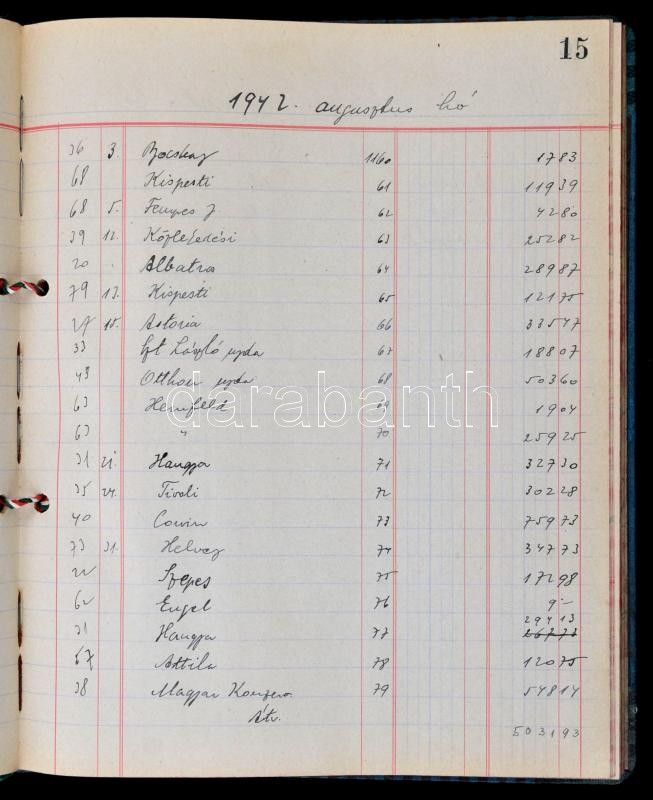 15
1942. augusztus hó
36 3. Bocskay 1160 1783
68 Kispesti 61 11939
68 5. Fenyves J 62 4280
39 12. 63 25282
20 Albatros 64 28987
79 13. Kispesti 65 12175
27 15. Astoria 66 33547
33 Szt László nyda 67 18807
43 Otthon nyda 68 50360
63 Hernfeld 69 1904
63 " 70 25925
31 21. Hangya 71 32730
35 24. Tivoli 72 30228
40 Corvin 73 75973
73 31. Helvey 74 34773
22 Szepes 75 17298
62 Engel 76 9-
29413
31 Hangya 77 26773
67 Attila 78 12075
38 Magyar Konzerv. 79 54814
Átv. 503193
darabanth